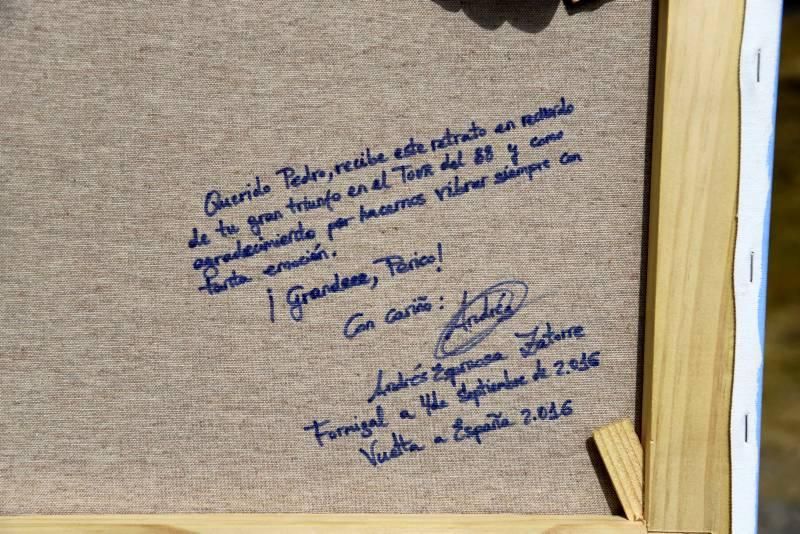 Querido Pedro, recibe este retrato en recuerdo
de tu gran triunfo en el Tour del 88 y como
agradecimiento por hacernos vibrar siempre con
tanta emoción.
¡Grandeee, Perico!
Con cariño: Andrés
Andrés Espinosa Zatorre
Formigal a 4 de septiembre de 2.016
Vuelta a España 2.016